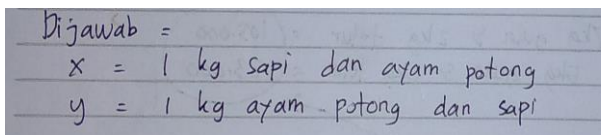 Dijawab =
x = 1 kg sapi dan ayam potong
y = 1 kg ayam potong dan sapi